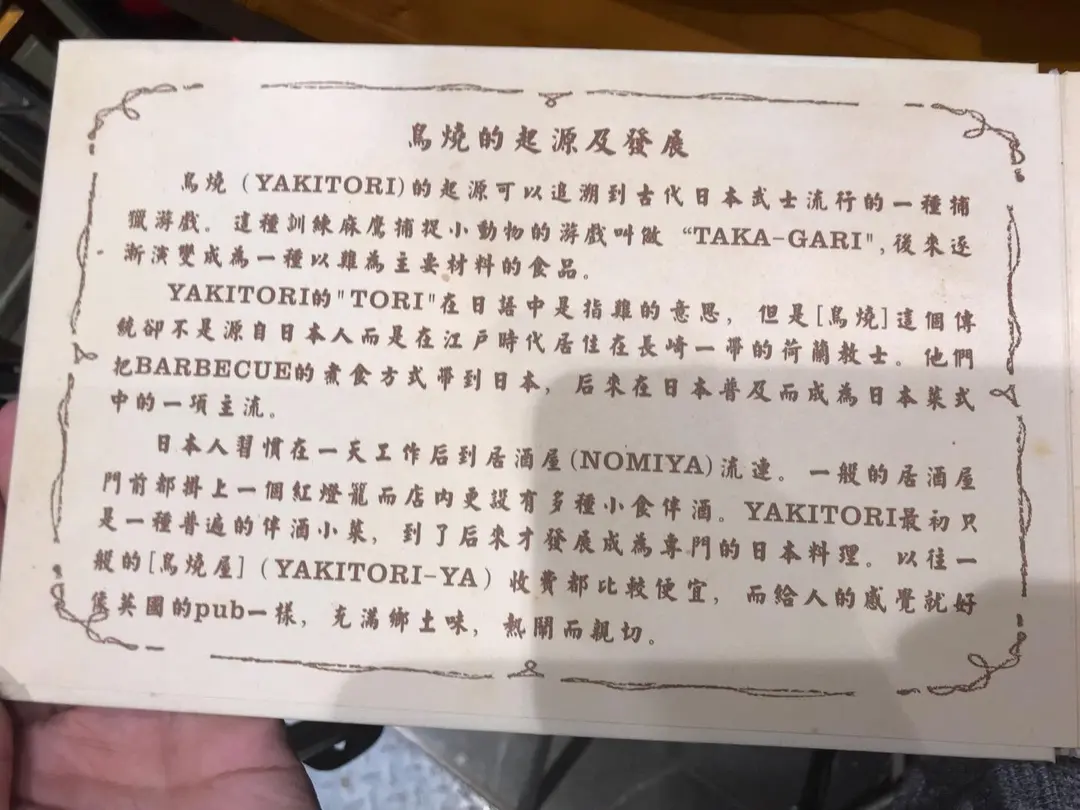 鳥燒的起源及發展
鳥燒（YAKITORI)的起源可以追溯到古代日本武士流行的一種捕
獵游戲。這種訓練麻鷹捕捉小動物的游戲叫做 “TAKA-GARI",後來逐
漸演變成為一種以雞為主要材料的食品。
YAKITORI的"TORI"在日語中是指雞的意思，但是[鳥燒]這個傳
統卻不是源自日本人而是在江戶時代居住在長崎一帶的荷蘭教士。他們
把BARBECUE的煮食方式帶到日本，后來在日本普及而成為日本菜式
中的一項主流。
日本人習慣在一天工作后到居酒屋(NOMIYA)流連。一般的居酒屋
門前都掛上一個紅燈籠而店內更設有多種小食伴酒。YAKITORI最初只
是一種普遍的伴酒小菜，到了后來才發展成為專門的日本料理。以往一
般的[鳥燒屋]（YAKITORI-YA）收費都比較便宜，而給人的感覺就好
像英國的pub一樣，充滿鄉土味，熱鬧而親切。